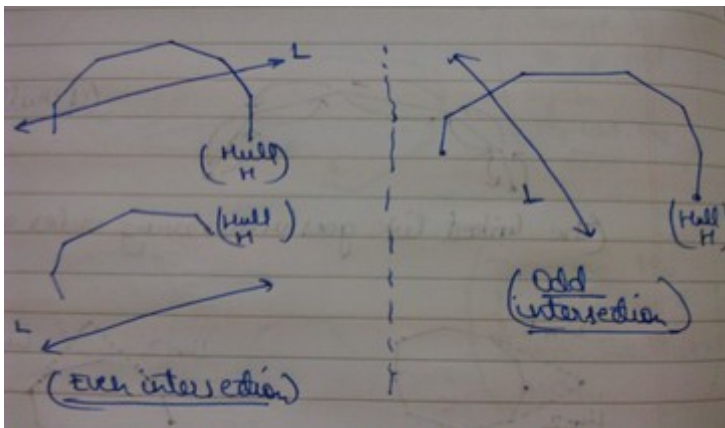 L
(Hull
H)
(Hull
H)
L
(Even intersection)
L
(Hull
H)
(Odd
intersection)